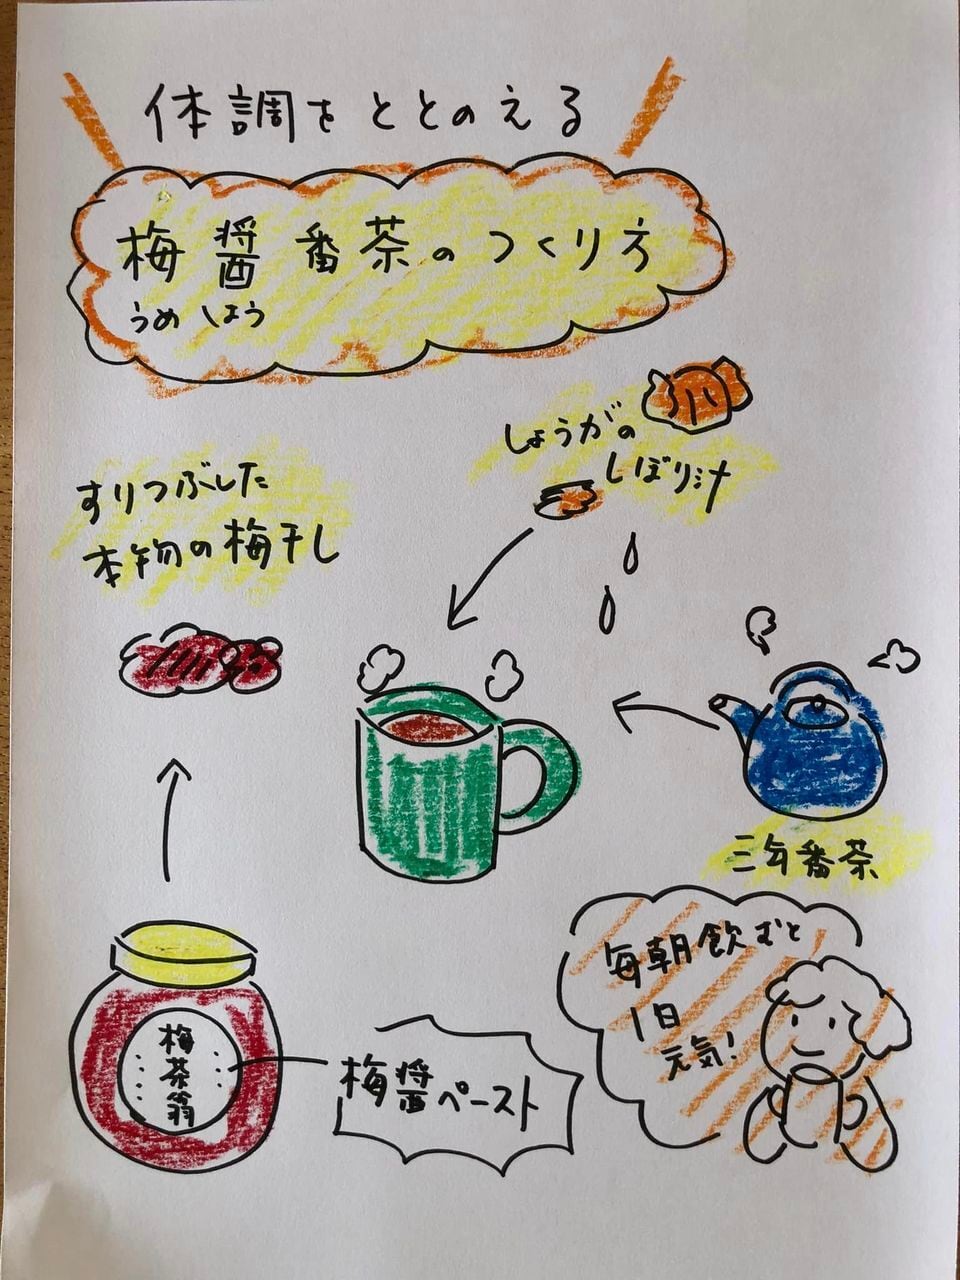 体調をととのえる
梅醤番茶のつくり方
うめしょう
しょうがの
しぼり汁
すりつぶした
本物の梅干し
三年番茶
毎朝飲むと
1日
元気!
梅茶翁
梅醤ペースト